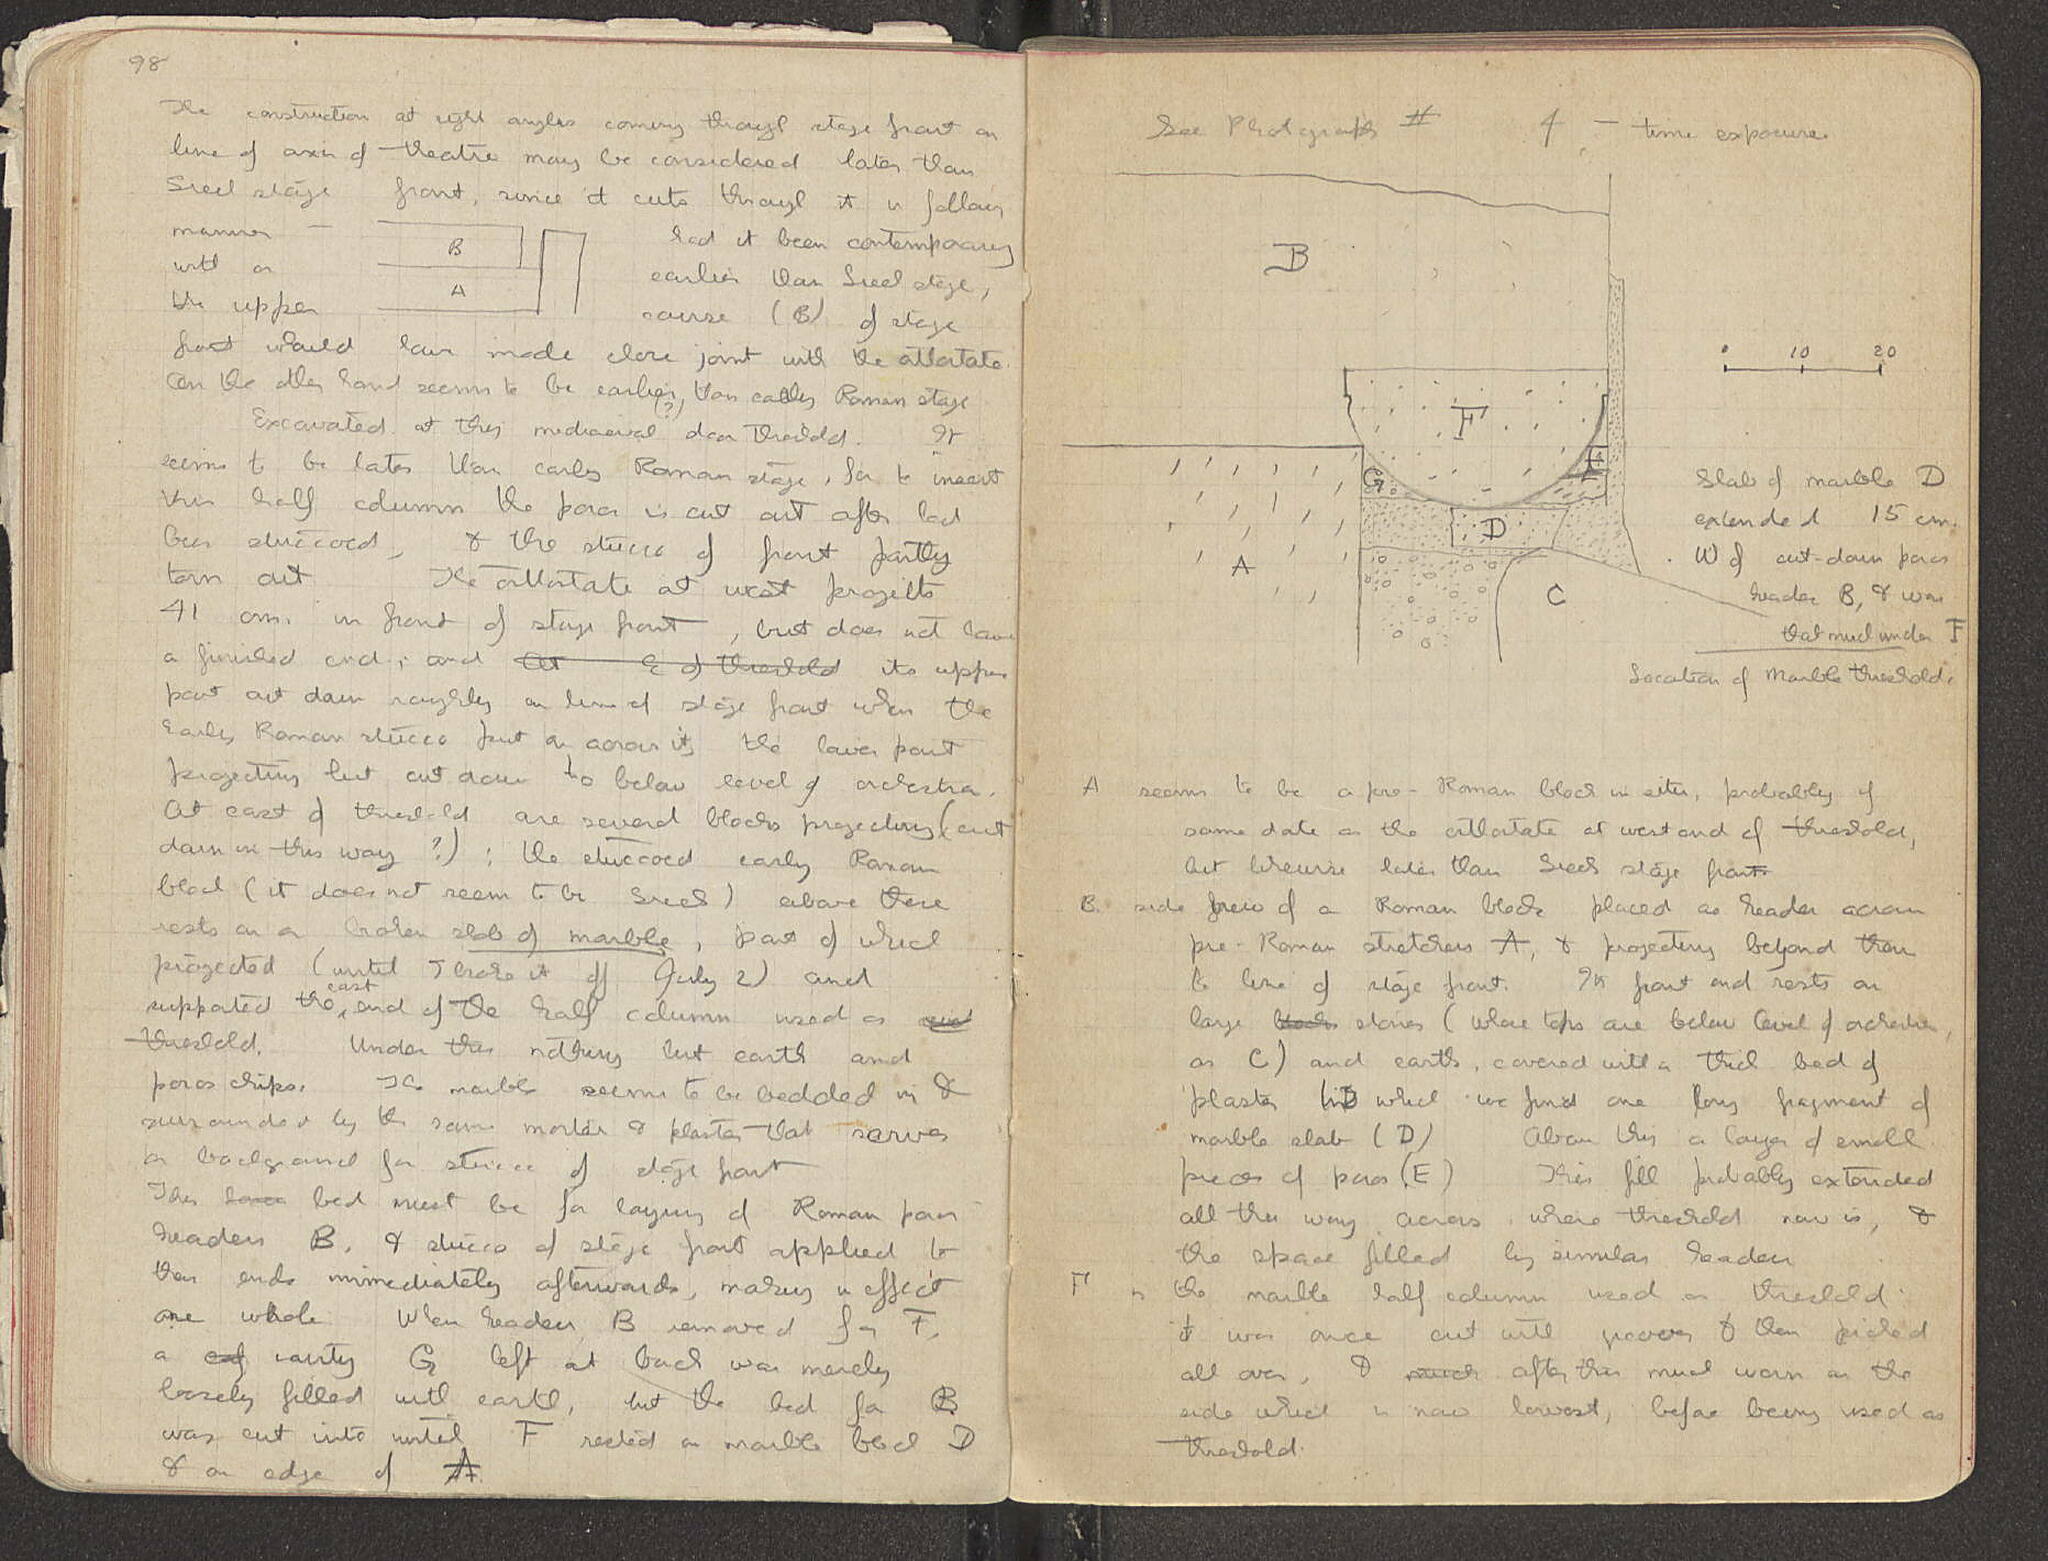 98
The construction at right angles coming through stage front on
line of axis of theatre may be considered later than
Greek stage front, since it cuts through it in following
manner —
B
A
had it been contemporary
with or
earlier than Greek stage,
the upper
course (B) of stage
front would have made close joint with the orthostate.
On the other hand seems to be earlier (?) than early Roman stage
Excavated at this mediaeval door threshold. It
seems to be later than early Roman stage, for to insert
this half column the poros is cut out after had
been stuccoed, & the stucco of front partly
torn out The orthostate at west projects
41 cm. in front of stage front, but does not have
a finished end; and At E of threshold its upper
part cut down roughly on line of stage front when the
Early Roman stucco put on across it, the lower part
projecting but cut down to below level of orchestra.
At east of threshold are several blocks projecting (cut
down in this way ?) ; the stuccoed early Roman
block (it does not seem to be Greek) above these
rests on a broken slab of marble, part of which
projected (until I broke it off July 2) and
supported the east end of the half column used as
threshold. Under this nothing but earth and
poros chips. The marble seems to be bedded in &
surrounded by the same mortar & plaster that serves
as background for stucco of stage front
This bed must be for laying of Roman poros
headers B, & stucco of stage front applied to
their ends immediately afterwards, making in effect
one whole When header B removed for F,
a cavity G left at back was merely
loosely filled with earth, but the bed for B
was cut into until F rested on marble block D
& on edge of A.
See Photograph # 4 — time exposure
B
0 10 20
F
G
E
D
A
C
Slab of marble D
extended 15 cm.
W of cut-down poros
header B, & was
that much under F
Location of Marble threshold.
A seems to be a pre-Roman block in situ, probably of
same date as the orthostate at west end of threshold,
but likewise later than Greek stage front.
B. side view of a Roman block placed as header across
pre-Roman stretchers A, & projecting beyond them
to line of stage front. Its front end rests on
large blocks stones (whose tops are below level of orchestra,
as C) and earth, covered with a thick bed of
plaster in which we find one long fragment of
marble slab (D) Above this a layer of small
pieces of poros (E) This fill probably extended
all the way across where threshold now is, &
the space filled by similar headers
F is the marble half column used as threshold.
it was once cut with grooves & then picked
all over, & after this much worn on the
side which is now lowest, before being used as
threshold.